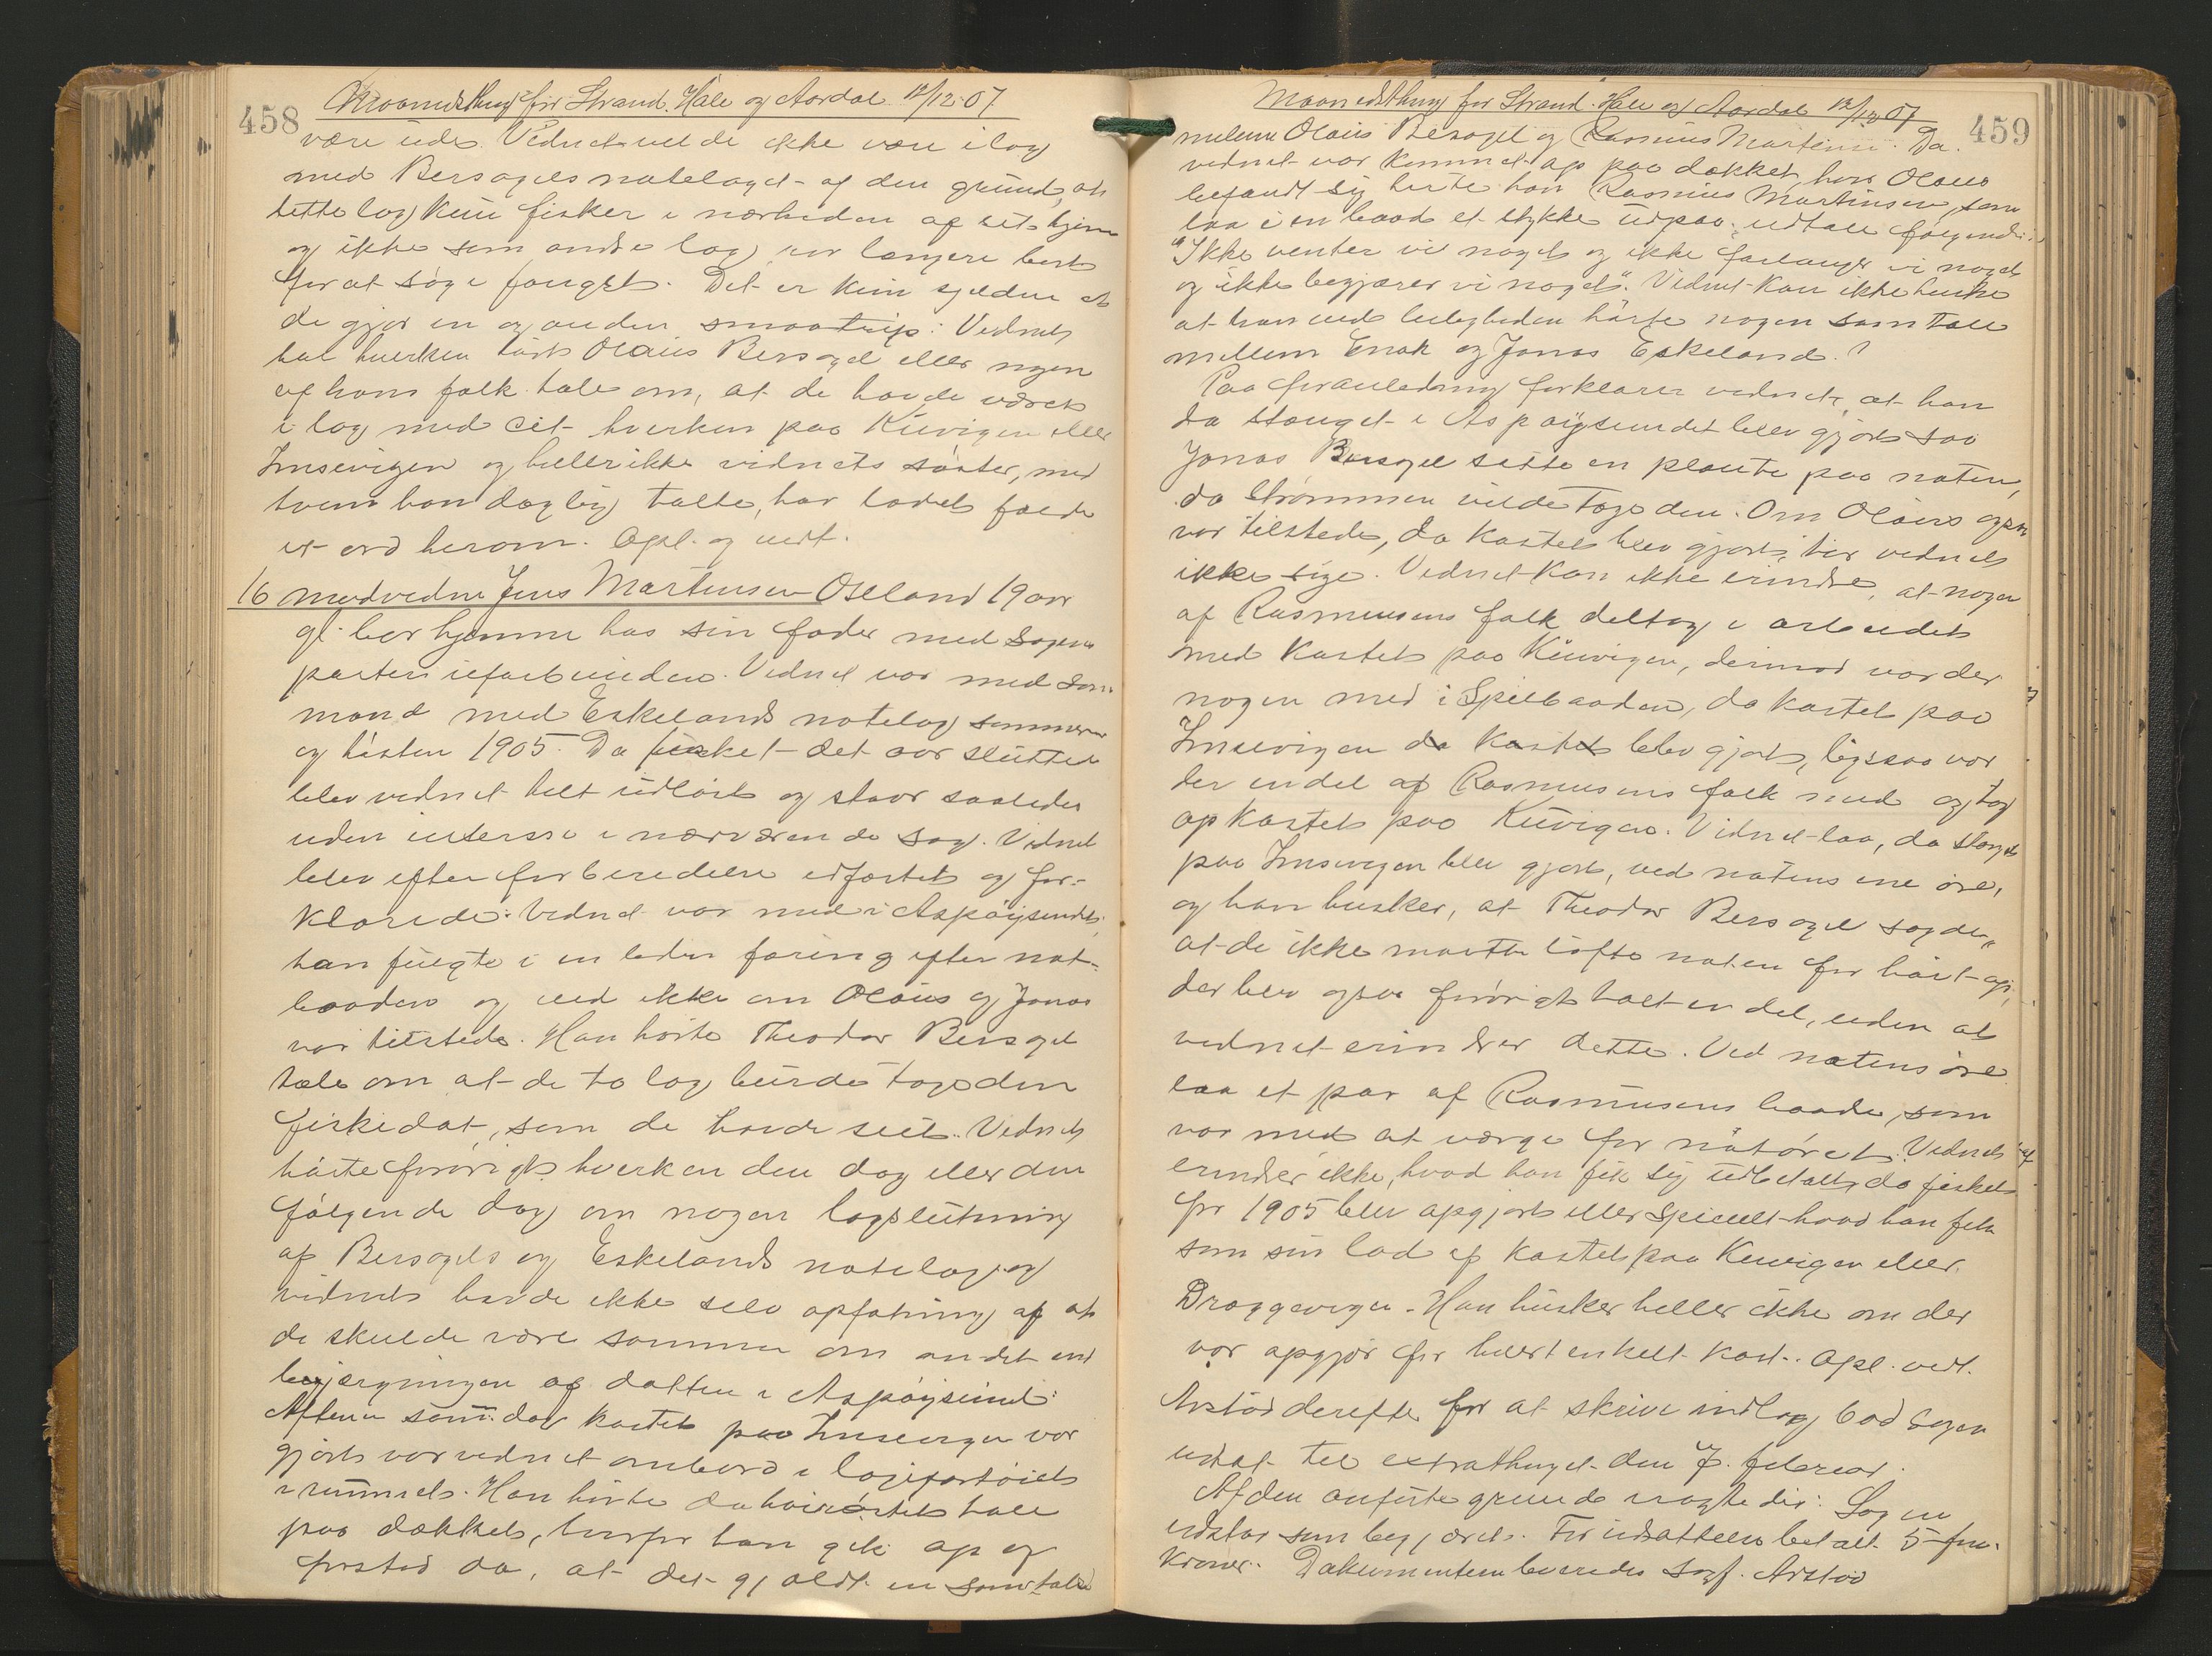 458
Maanedsthing for Strand. Hæle og Aardal 12/12.07
være uden. Vidnet vilde ikke være i lag
med Bersagels notelaget af den grund, at
dette lag kun fisker i nærheden af sit hjem
og ikke som andre lag, rør længere bort
for at søge fangst. Det er kun sjelden at
de gjør en og anden smaatrip. Vidnet
har hverken hørt Olaus Bersagel eller nogen
af hans folk tale om, at de havde været
i lag med cit. hverken paa Kuvigen eller
Imsevigen og heller ikke vidnets søster, med
hvem han daglig talte, har ladet falde
et ord herom. Opl. og vedt.
16 modvidne Jens Martinsen Oseland 19 aar
gl. bor hjemme hos sin fader med sagens
parter ubeslægtet. Vidnet var med som
mand med Eskelands notelag sommeren
og høsten 1905. Da fisket det aar sluttet
blev vidnet helt udløst og staar saaledes
uden interesse i nærværende sag. Vidnet
blev efter forberedelse edfæstet og for-
klarede: Vidnet var med i Aspøysundet,
han fulgte i en liden færing efter not-
baaden og ved ikke om Olaus og Jonas
var tilstede. Han hørte Theodor Bersagel
tale om at de to lag burde tage den
fiskedot, som de havde seet. Vidnet
hørte forøvrigt hverken den dag eller den
følgende dag om nogen lagslutning
af Bersagels og Eskelands notelag og
vidnet havde ikke selv opfatning af at
de skulde være sammen om andet end
bergningen af dotten i Aspøysund.
Aftenen samme dag kastet paa Imsevigen var
gjort var vidnet ombord i logifartøiet
i rummet. Han hørte da høirøstet tale
paa dækket, hvorfor han gik op og
forstod da, at det gjaldt en samtale

459
Maanedsthing for Strand. Hæle og Aardal 12/12 07
mellem Olaus Bersagel og Rasmus Martinsen. Da
vidnet var kommet op paa dækket, hvor Olaus
befandt sig hørte han Rasmus Martinsen, som
laa i en baad et stykke udpaa, udtale følgende:
"Ikke venter vi noget og ikke forlanger vi noget
og ikke begjærer vi noget". Vidnet kan ikke huske
at han ved leiligheden hørte nogen samtale
mellem Enok og Jonas Eskeland.
Paa foranledning forklarer vidnet, at han
da stænget i Aspøysundet blev gjort saa
Jonas Bersagel sætte en plante paa noten,
da strømmen vilde tage den. Om Olaus ogsaa
var tilstede, da kastet blev gjort, tør vidnet
ikke sige. Vidnet kan ikke erindre, at nogen
af Rasmusens folk deltog i arbeidet
med kastet paa Kuvigen, derimod var der
nogen med i Spilbaaden, da kastet paa
Imsevigen da kastet blev gjort, ligesaa var
der endel af Rasmusens folk med og tog
op kastet paa Kuvigen. Vidnet laa, da stænget
paa Imsevigen blev gjort, ved notens ene øre,
og han husker, at Theodor Bersagel sagde,
at de ikke maatte løfte noten for høit op,
der blev ogsaa forøvrigt talt en del, uden at
vidnet erindrer dette. Ved notens øre
laa et par af Rasmusens baade, som
var med at værge for notøret. Vidnet
erindrer ikke, hvad han fik sig udbetalt, da fisket
for 1905 blev opgjort eller specielt hvad han fik
som sin lod af kastet paa Kuvigen eller
Draggevigen. Han husker heller ikke om der
var opgjør for hvert enkelt kast. Opl. vedt.
Arstad derefter for at skrive indlæg bad sagen
udsat til extrathinget den 7. februar.
Af den anførte grund vragte dis: Sagen
udstaar som begjæret. For udsættelse betalt 5 fem
kroner. Dokumenterne leveredes sagf. Arstad